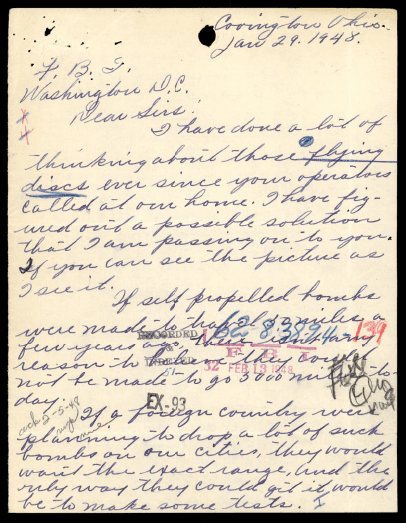 Covington Ohio.
Jan 29. 1948.
F. B. I.
Washington D.C.
Dear Sirs:
I have done a lot of
thinking about those flying
discs ever since your operators
called at our home. I have fig-
ured out a possible solution
that I am passing on to you.
If you can see the picture as
I see it.
If self propelled bombs
were made to travel miles a
few years ago, there isn't any
RECORDED
62-83894-139
reason to they could
F B I
32 FEB 13 1948
not be made to go 5000 miles to-
day.
EX-93
ack 2-5-48
If a foreign country were
planning to drop a lot of such
bombs on our cities, they would
want the exact range. And the
only way they could get it would
be to make some tests.